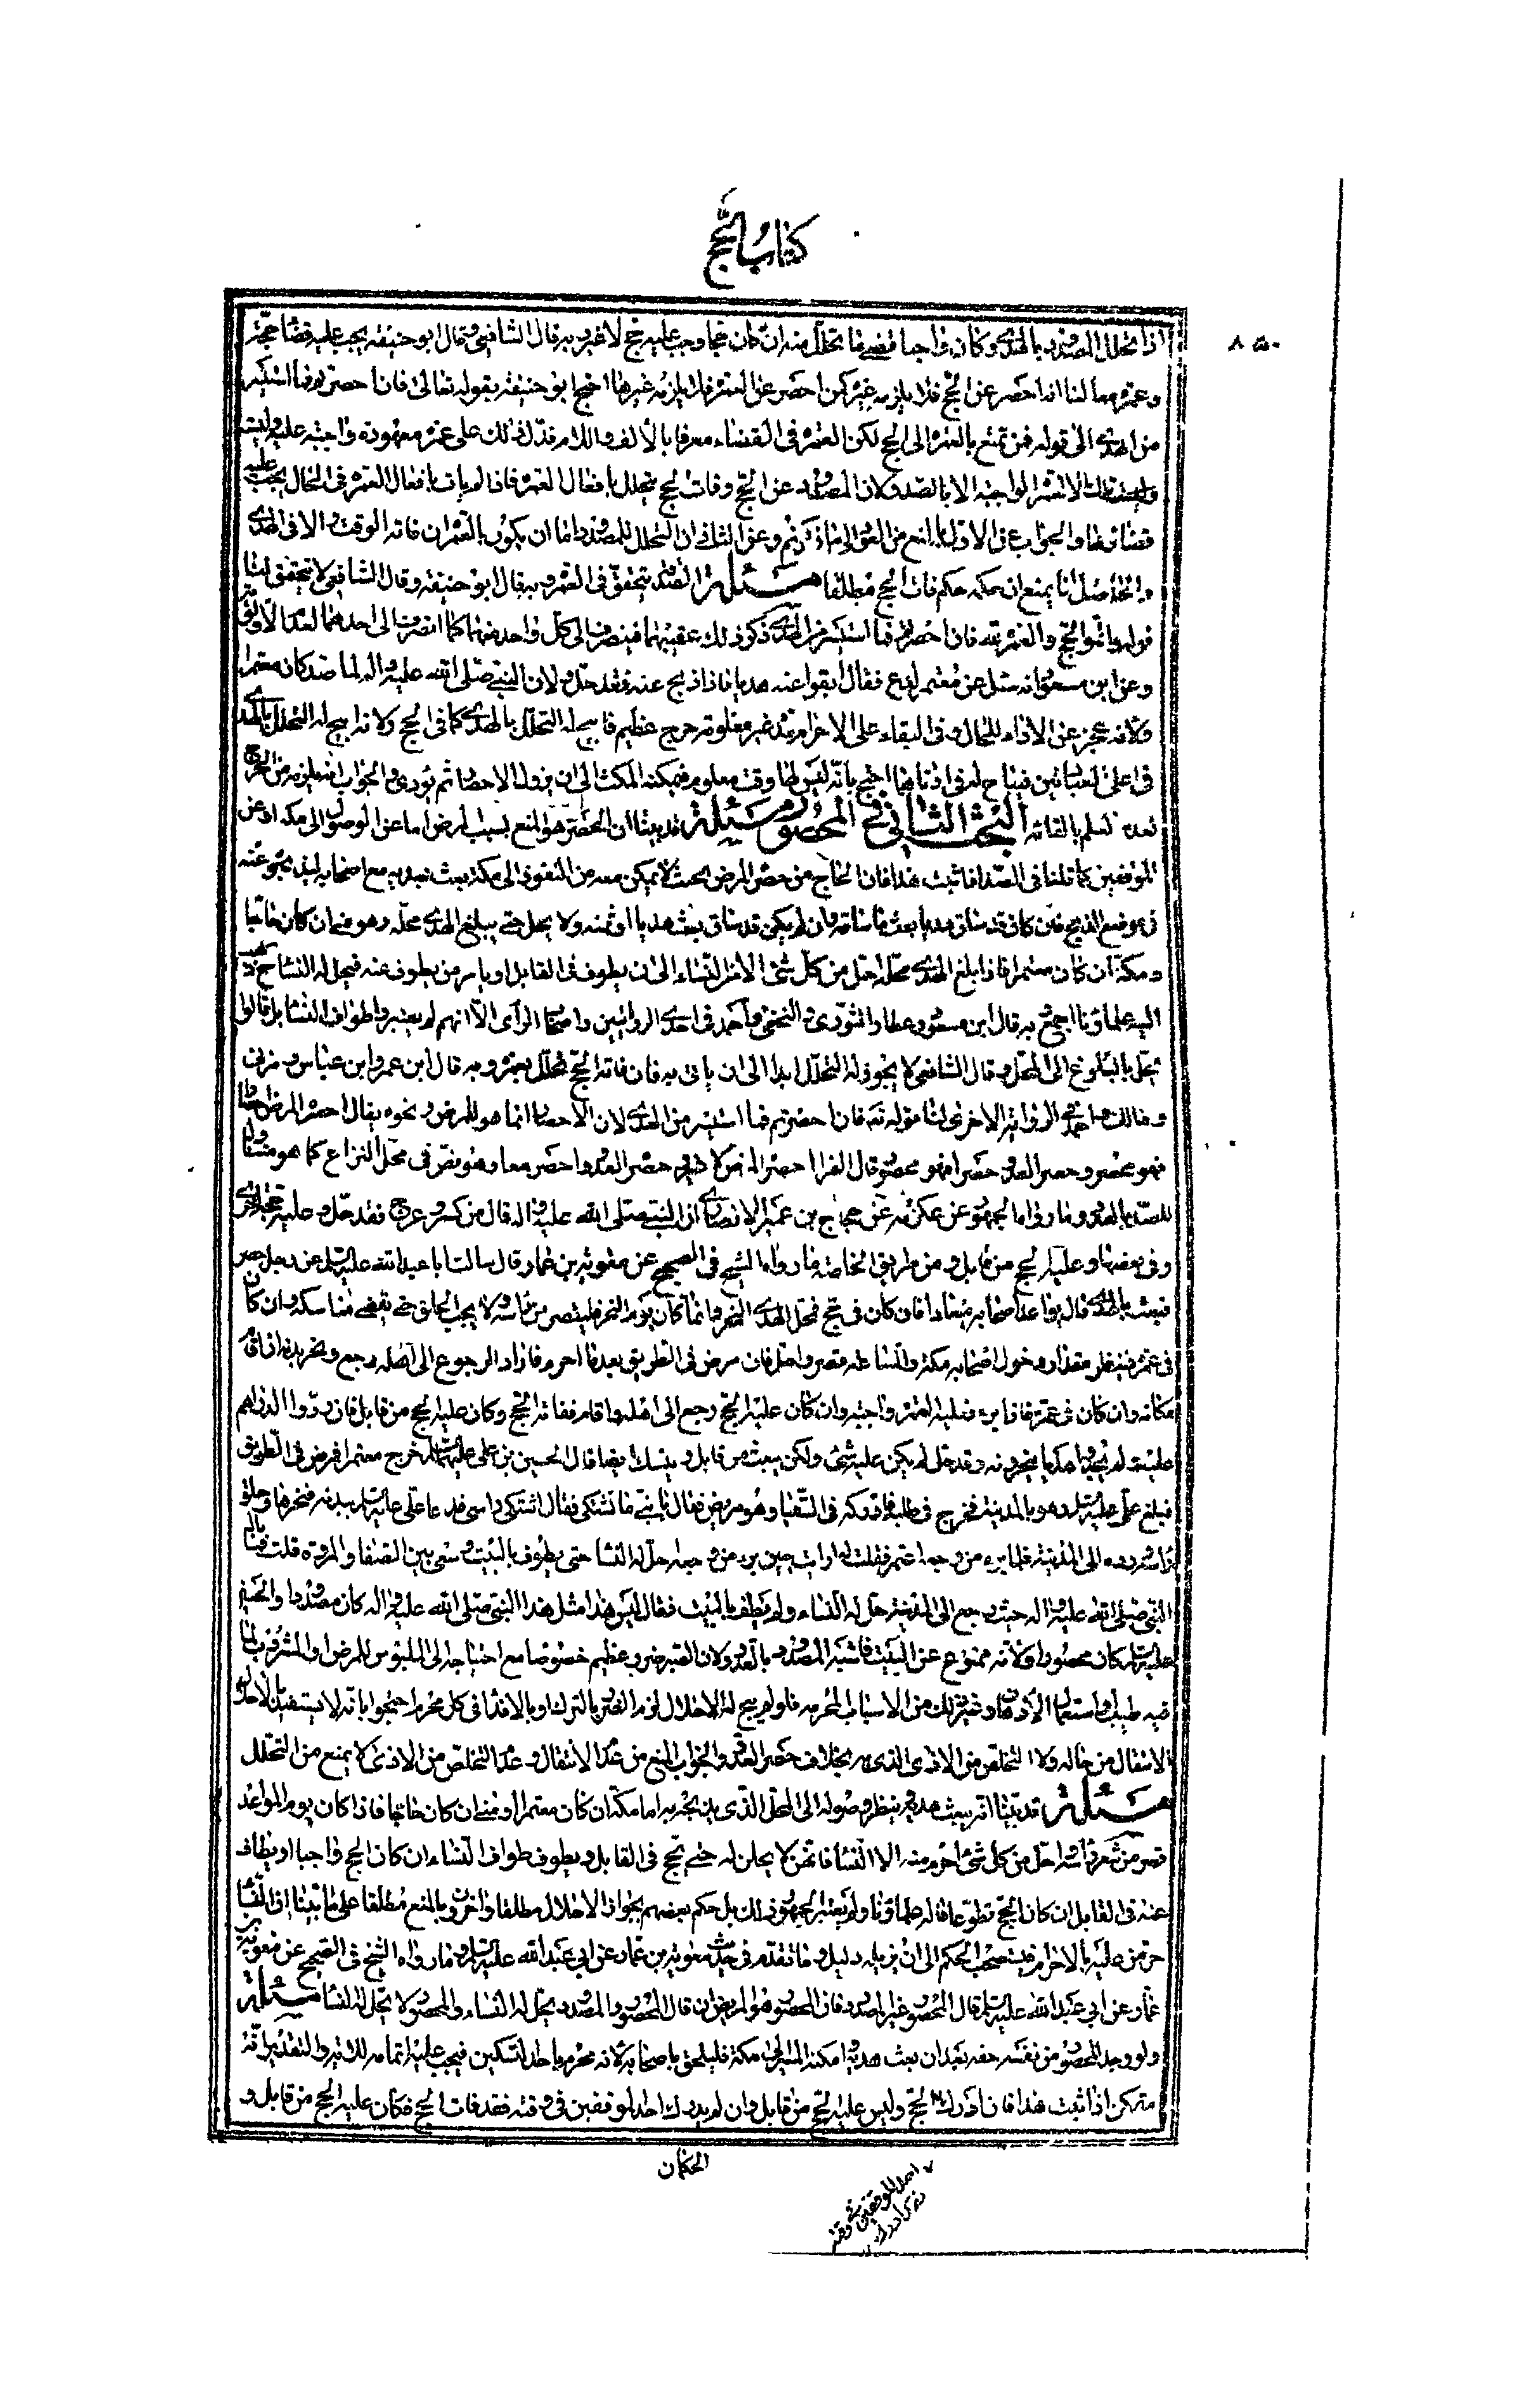 كتاب الحج
٨٥٠
اذا تحلل المصدود بالهدى وكان واجبا قضى ما تحلل منه ان كان حجا وجب عليه حج لا غير وبه قال الشافعي وقال ابو حنيفة يجب عليه قضاء حجة
وعمرة معا لنا انه احصر عن الحج فلا يلزمه غيره كمن احصر عن العمرة فلا يلزمه غيرها احتج ابو حنيفة بقوله تعالى فان احصرتم فما استيسر
من الهدى الى قوله فمن تمتع بالعمرة الى الحج لكن العمرة فى القضاء معرفا بالالف واللام فدل ذلك على عمرة معهودة واجبة عليه وليست
الا العمرة الواجبة الا بالصد ولان المصدود عن الحج وفات الحج يتحلل بافعال العمرة فاذا لم يات بافعال العمرة فى الحال يجب عليه
قضاؤها والجواب عن الاول بالمنع من العود الى ما ذكرتم وعن الثانى ان التحلل للمصدود انما ان يكون بالعمرة ان فاته الوقت والا فى الهدى
والحاصل انا نمنع ان حكمه حكم فات الحج مطلقا مسئلة الصد يتحقق فى العمرة وبه قال ابو حنيفة وقال الشافعى لا يتحقق لنا
قوله واتموا الحج والعمرة لله فان احصرتم فما استيسر من الهدى ذكر ذلك عقيبهما فينصرف الى كل واحد منهما كما انصرف الى احدهما لعدم الاولوية
وعن ابن مسعود انه سئل عن معتمر لدغ فقال ابعثوا عنه هديا فاذا ذبح عنه فقد حل ولان النبى صلى الله عليه واله لما صد كان معتمرا
ولانه عجز عن الاداء للحال وفى البقاء على الاحرام مدة غير معلومة حرج عظيم فابيح له التحلل بالهدى كما فى الحج ولانه ابيح له التحلل بالهدى
فى اعلى العبادتين فيباح له فى ادناهما احتج بانه ليس لها وقت معلوم فيمكنه المكث الى ان يزول الاحصار ثم يؤدى والجواب انه يلزمه من الحرج
بعده تعلم بالفائه البحث الثانى فى المحصور مسئلة قد بينا ان الحصر هو المنع بسبب المرض اما عن الوصول الى مكة او عن
الموقفين كما قلنا فى الصد اذا ثبت هذا فان الحاج من حصره المرض بحيث لا يمكن معه من النفوذ الى مكة بعث بهديه مع اصحابه ليذبحوا عنه
فى موضع الذبح فان كان قد ساق هديا بعث ما ساقه وان لم يكن قد ساق بعث هديا او ثمنه ولا يحل حتى يبلغ الهدى محله وهو منى ان كان حاجا
ومكة ان كان معتمرا فاذا بلغ الهدى محله احل من كل شئ الا من النساء الى ان يطوف فى القابل او يامر من يطوف عنه فيحل له النساء ح ذهب
اليه علماؤنا اجمع وبه قال ابن مسعود وعطا والثورى والنخعى واحمد فى احدى الروايتين واصحاب الرأى الا انهم لم يعتبروا طواف النساء بل قالوا
يحل بالبلوغ الى المحل وقال الشافعى لا يجوز له التحلل ابدا الى ان ياتى به فان فاته الحج تحلل بعمرة وبه قال ابن عمر وابن عباس ومروان
ومالك واحمد فى الرواية الاخرى لنا قوله تع فان احصرتم فما استيسر من الهدى لان الاحصار انما هو للمرض ونحوه يقال احصره المرض احصارا
فهو محصر وحصره العدو حصرا فهو محصور قال الفرا احصره المرض لا غير وحصره العدو واحصره معا وهو نص فى محل النزاع كما هو متناول
للصد بالعدو وما رواه الجمهور عن عكرمة عن حجاج بن عمرو الانصارى ان النبى صلى الله عليه واله قال من كسر او عرج فقد حل وعليه حجة اخرى
وفى بعضها وعليه الحج من قابل ومن طريق الخاصة ما رواه الشيخ فى الصحيح عن معوية بن عمار قال سالت ابا عبد الله عليه السلام عن رجل احصر
فبعث بالهدى قال يواعد اصحابه ميعادا فان كان فى حج فمحل الهدى النحر واذا كان يوم النحر فليقصر من راسه ولا يجب الحلق حتى يقضى مناسكه وان كان
فى عمرة فلينظر مقدار دخول اصحابه مكة والساعة قصر واحل فان مرض فى الطريق بعد ما احرم فاراد الرجوع الى اهله رجع ونحر بدنة او اقام
مكانه وان كان فى عمرة فاذا برء فعليه العمرة واجبة وان كان عليه الحج رجع الى اهله واقام ففاته الحج وكان عليه الحج من قابل فان ردوا الدراهم
عليه ولم يجدوا هديا ينحرونه وقد حل لم يكن عليه شئ ولكن يبعث من قابل ويمسك ايضا قال الحسين بن على عليهما السلام خرج معتمرا فمرض فى الطريق
فبلغ على عليه السلام وهو بالمدينة فخرج فى طلبه فادركه فى السقيا وهو مريض فقال يا بنى ما تشتكى فقال اشتكى راسى فدعا على عليه السلام ببدنة فنحرها وحلق
راسه ورده الى المدينة فلما برء من وجعه اعتمر فقلت له ارايت حين برء من وجعه حل له النساء حتى يطوف بالبيت وسعى بين الصفا والمروة قلت فما بال
النبى صلى الله عليه واله حيث رجع الى المدينة حل له النساء ولم يطف بالبيت فقال ليس هذا مثل هذا النبى صلى الله عليه واله كان مصدودا والحسين
عليه السلام كان محصورا ولانه ممنوع عن البيت فاشبه المصدود بالعدو ولان الصبر ضرر عظيم خصوصا مع احتياجه الى الملبوس للمرض او المشروب لما
فيه طيب او استعمال الادهان وغير ذلك من الاسباب المحرمة فلو لم يبح له الاحلال لزم الضرر بالترك او بالافداء فى كل محرم احتجوا بانه لا يستفيد بالاحلال
الانتقال من حاله ولا التخلص من الاذى الذى به بخلاف حصر العدو والجواب المنع من عدم الانتقال وعدم التخلص من الاذى لا يمنع من التحلل
مسئلة قد بينا انه يبعث هديه وينتظر وصوله الى المحل الذى يذبحه به اما مكة ان كان معتمرا او منى ان كان حاجا فاذا كان يوم المواعد
قصر من شعر راسه واحل من كل شئ احرم منه الا النساء فانهن لا يحلن له حتى يحج فى القابل ويطوف طواف النساء ان كان الحج واجبا او يطاف
عنه فى القابل ان كان الحج تطوعا قاله علماؤنا ولم يعتبر الجمهور ذلك بل حكم بعضهم بجواز الاحلال مطلقا واخرون بالمنع مطلقا على ما بينا لنا ان النساء
حرمن عليه بالاحرام فيستصحب الحكم الى ان يزيله دليل وما تقدم فى حديث معوية بن عمار عن ابى عبد الله عليه السلام وما رواه الشيخ فى الصحيح عن معوية بن
عمار عن ابى عبد الله عليه السلام قال المحصور غير المصدود فان المحصور هو المريض ان قال المحصور والمصدود يحل له النساء والمحصور لا يحل له النساء مسئلة
ولو وجد المحصور من نفسه خفة بعد ان بعث هديه امكنه المسير الى مكة فليلحق باصحابه لانه محرم باحد النسكين فيجب عليه اتمامه للاية والتقدير انه
متمكن اذا ثبت هذا فان ادرك الحج وليس عليه الحج من قابل وان لم يدرك احد الموقفين فى وقته فقد فات الحج فكان عليه الحج من قابل و
الحكمان
احد الموقفين فى وقته